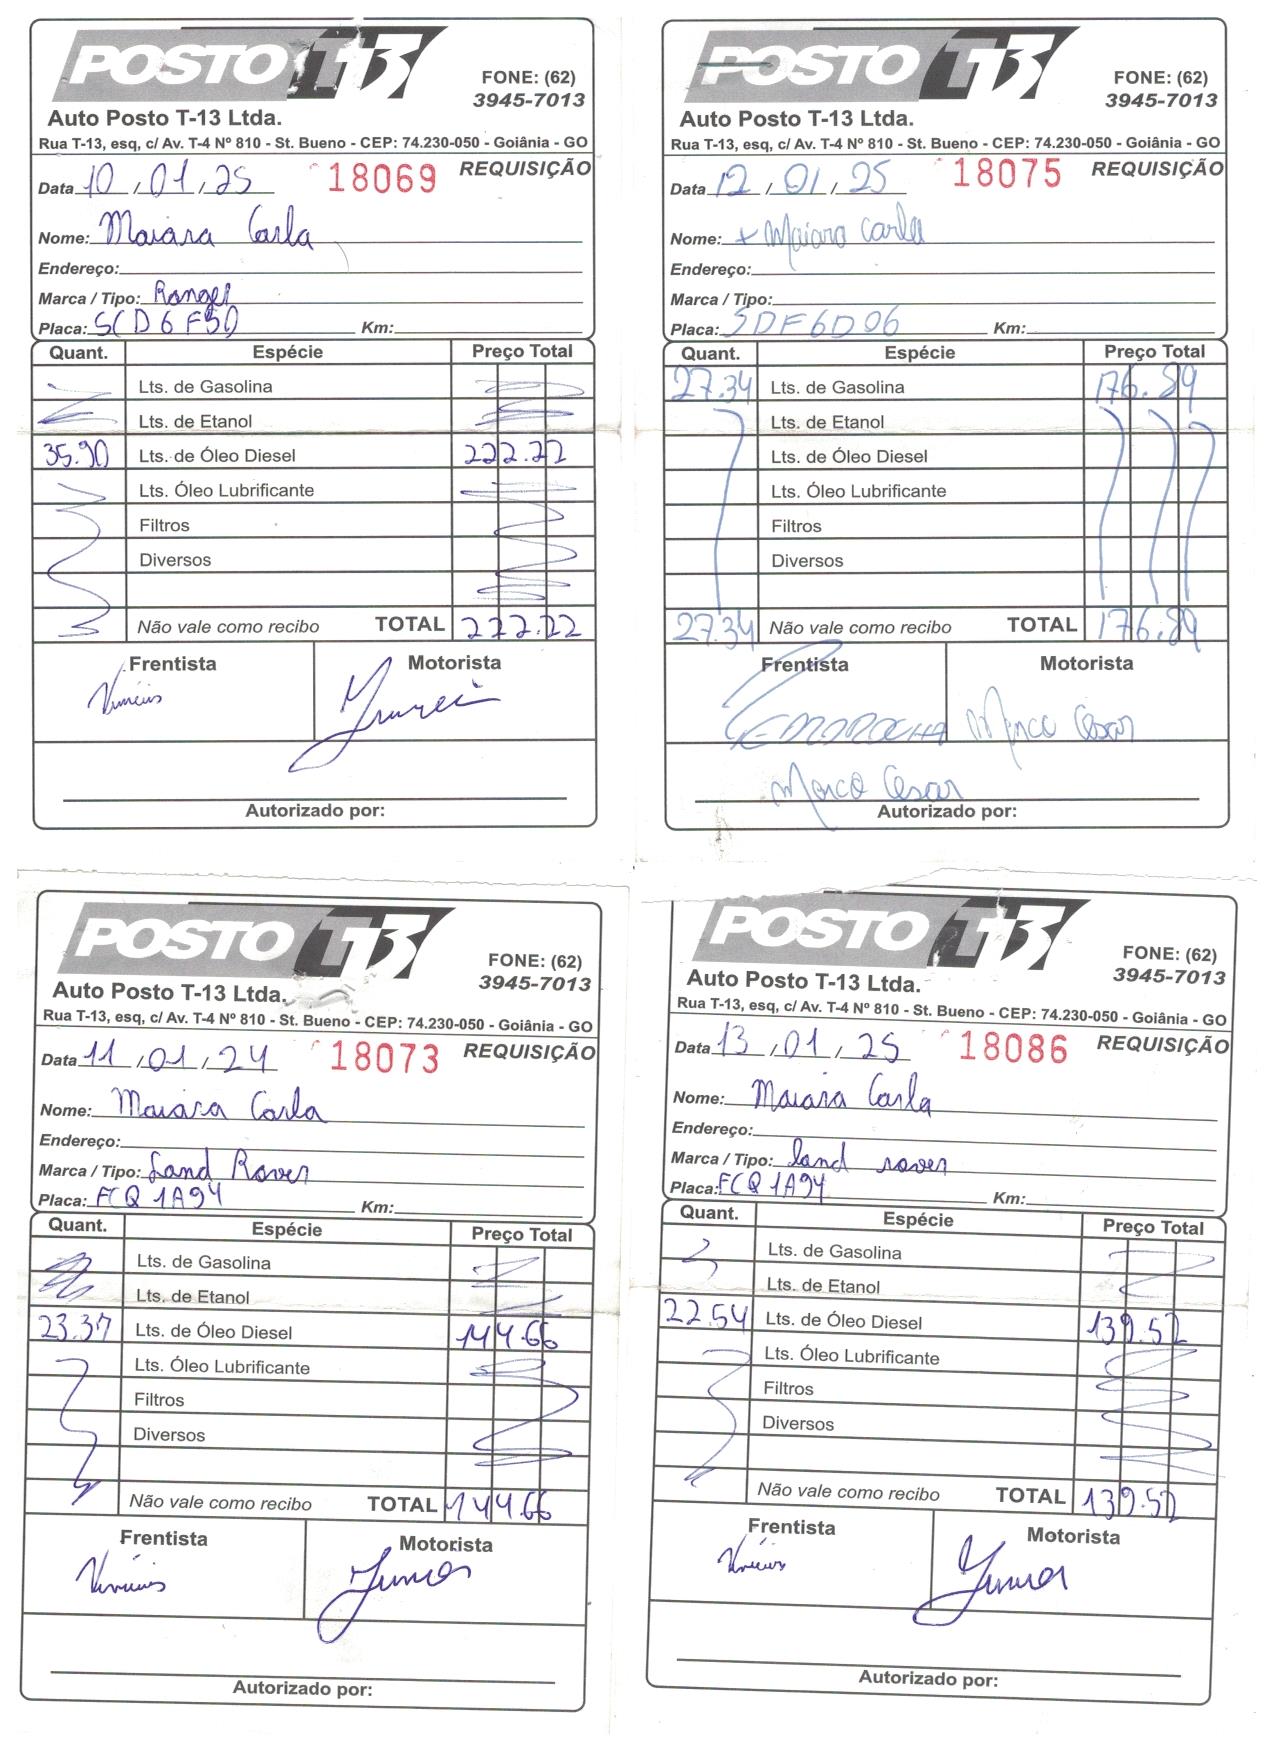 POSTO T-13
FONE: (62)
3945-7013
Auto Posto T-13 Ltda.
Rua T-13, esq, c/ Av. T-4 Nº 810 - St. Bueno - CEP: 74.230-050 - Goiânia - GO
Data 10 / 01 / 25 18069 REQUISIÇÃO
Nome: Maiara Carla
Endereço:
Marca / Tipo: Ranger
Placa: SCD6F50 Km:
Quant. Espécie Preço Total
Lts. de Gasolina
Lts. de Etanol
35.90 Lts. de Óleo Diesel 222.22
Lts. Óleo Lubrificante
Filtros
Diversos
Não vale como recibo TOTAL 222.22
Frentista Motorista
Vinicius
Autorizado por:
POSTO T-13
FONE: (62)
3945-7013
Auto Posto T-13 Ltda.
Rua T-13, esq, c/ Av. T-4 Nº 810 - St. Bueno - CEP: 74.230-050 - Goiânia - GO
Data 12 / 01 / 25 18075 REQUISIÇÃO
Nome: + Maiara Carla
Endereço:
Marca / Tipo:
Placa: SDF6D06 Km:
Quant. Espécie Preço Total
27.34 Lts. de Gasolina 176.89
Lts. de Etanol
Lts. de Óleo Diesel
Lts. Óleo Lubrificante
Filtros
Diversos
27.34 Não vale como recibo TOTAL 176.89
Frentista Motorista
Marco Cesar
Marco Cesar
Autorizado por:
POSTO T-13
FONE: (62)
3945-7013
Auto Posto T-13 Ltda.
Rua T-13, esq, c/ Av. T-4 Nº 810 - St. Bueno - CEP: 74.230-050 - Goiânia - GO
Data 11 / 01 / 24 18073 REQUISIÇÃO
Nome: Maiara Carla
Endereço:
Marca / Tipo: Land Rover
Placa: FCQ 1A94 Km:
Quant. Espécie Preço Total
Lts. de Gasolina
Lts. de Etanol
23.37 Lts. de Óleo Diesel 144.66
Lts. Óleo Lubrificante
Filtros
Diversos
Não vale como recibo TOTAL 144.66
Frentista Motorista
Vinicius Junior
Autorizado por:
POSTO T-13
FONE: (62)
3945-7013
Auto Posto T-13 Ltda.
Rua T-13, esq, c/ Av. T-4 Nº 810 - St. Bueno - CEP: 74.230-050 - Goiânia - GO
Data 13 / 01 / 25 18086 REQUISIÇÃO
Nome: Maiara Carla
Endereço:
Marca / Tipo: land rover
Placa: FCQ 1A94 Km:
Quant. Espécie Preço Total
Lts. de Gasolina
Lts. de Etanol
22.54 Lts. de Óleo Diesel 139.52
Lts. Óleo Lubrificante
Filtros
Diversos
Não vale como recibo TOTAL 139.52
Frentista Motorista
Vinicius Junior
Autorizado por: